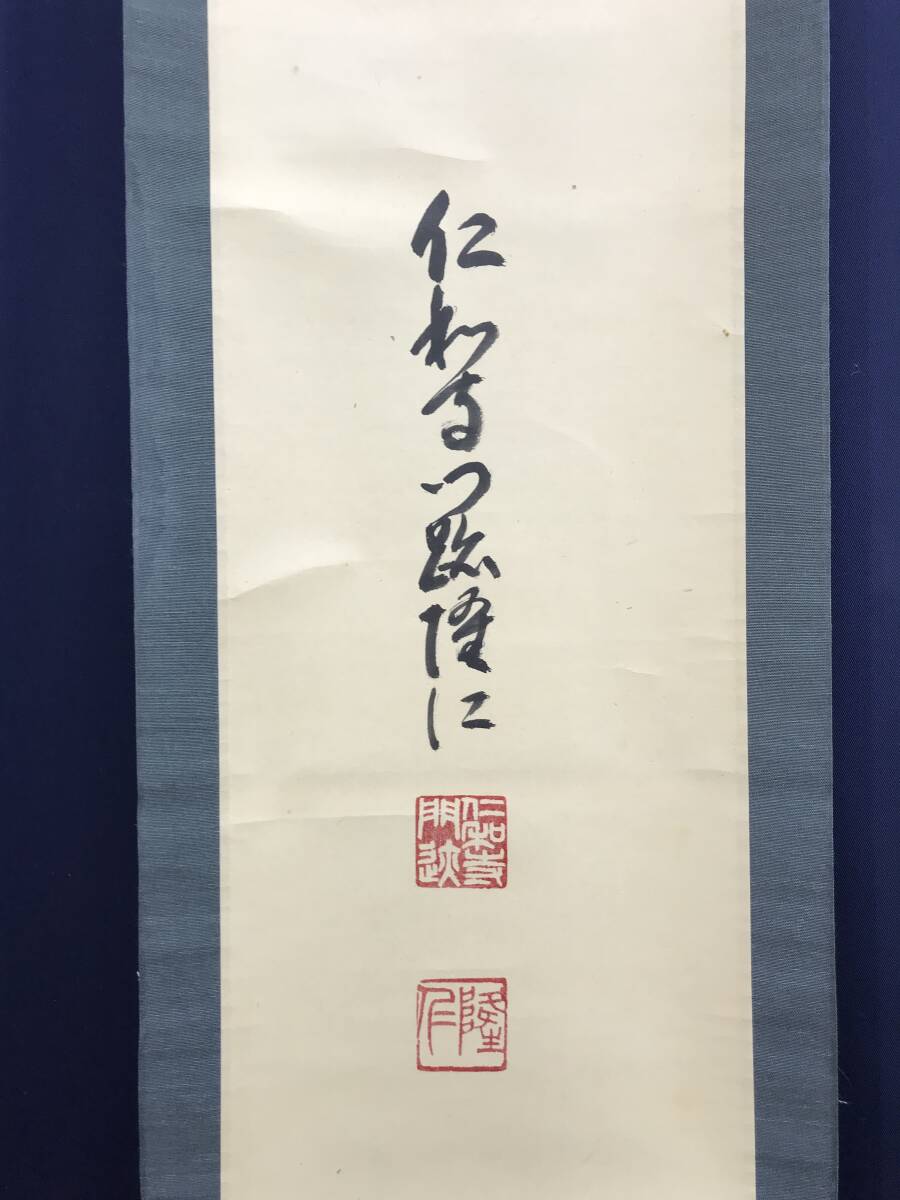 仁和寺門跡隆仁
仁和寺
門跡
隆仁